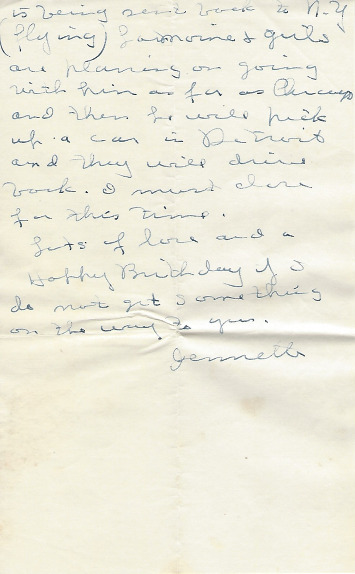 is being sent back to N.Y
(flying) & girls
are planing on going
with him as far as Chicago
and then he will pick
up a car in Detroit
and they will drive
back. I must close
for this time.
Lots of love and a
Happy Birthday if I
do not get something
on the way to you.
Jennette